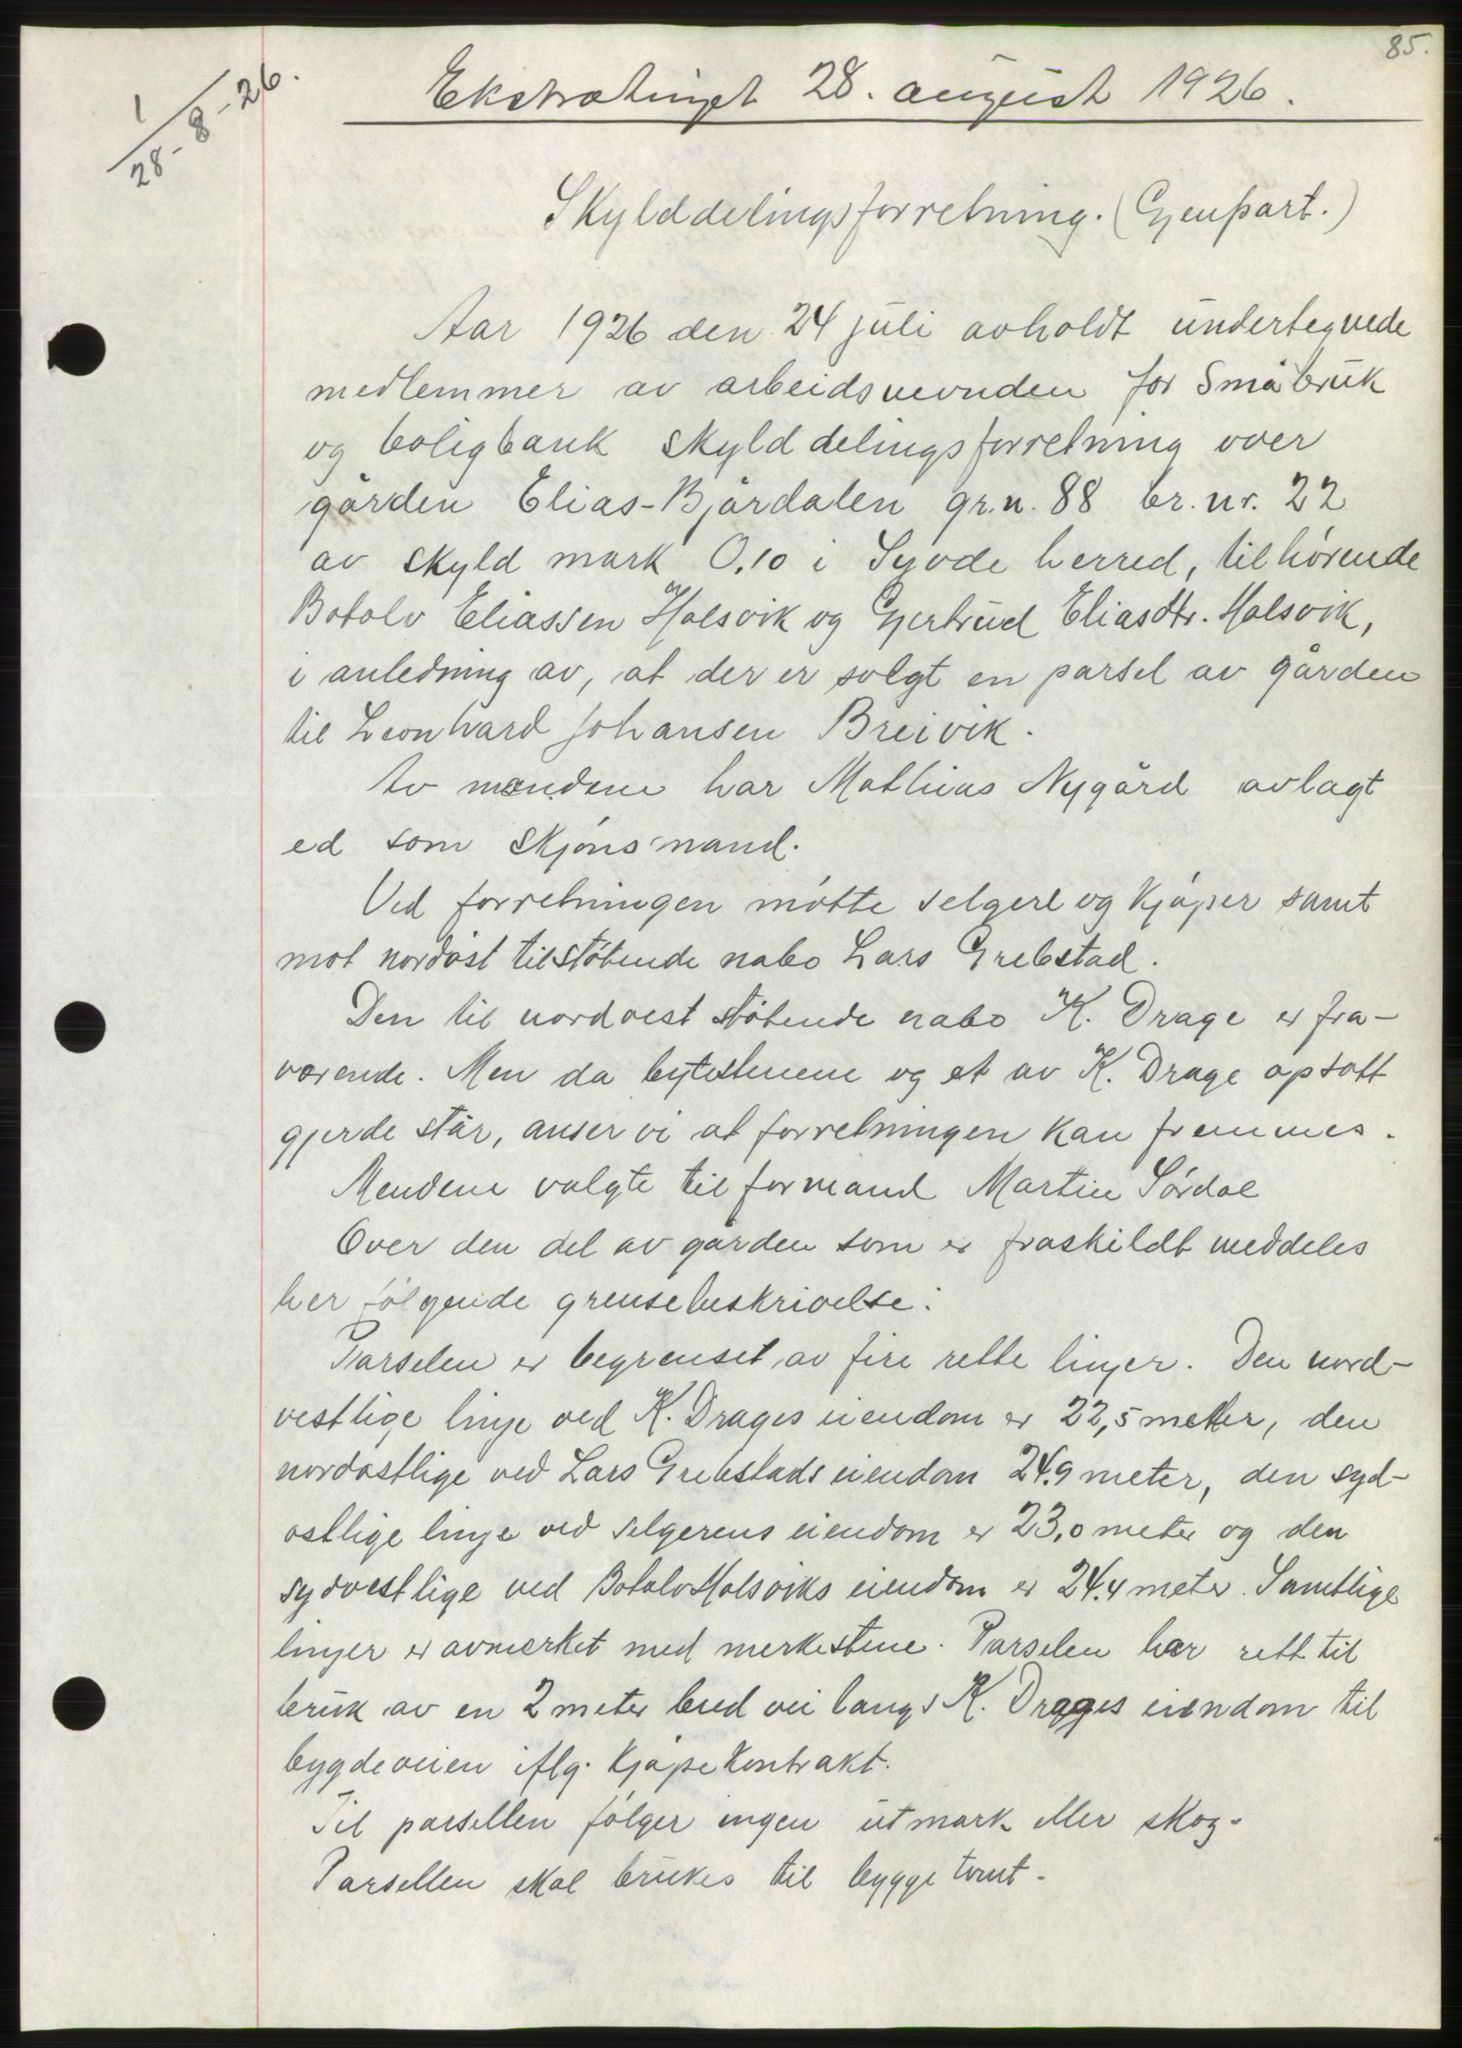 85.
1
28-8-26.
Ekstratinget 28. august 1926.
Skylddelingsforretning. (Gjenpart.)
Aar 1926 den 24 juli avholdt undertegnede
medlemmer av arbeidsnevnden for Småbruk
og boligbank skylddelingsforretning over
gården Elias-Bjørdalen gr.n. 88 br.nr. 22
av skyld mark 0,10 i Syvde herred, tilhørende
Botolv Eliassen Holsvik og Gjertrud Eliasdtr. Holsvik,
i anledning av, at der er solgt en parsel av gården
til Leonhard Johansen Breivik.
Av mendene har Mathias Nygård avlagt
ed som skjønsmand.
Ved forretningen møtte selgere og kjøper samt
mot nordøst tilstøtende nabo Lars Grebstad.
Den til nordvest støtende nabo K. Drage er fra-
værende. Men da bytestenene og et av K. Drage opsatt
gjerde står, anser vi at forretningen kan fremmes.
Mendene valgte til formand Martin Sørdal
Over den del av gården som er fraskildt meddeles
her følgende grensebeskrivelse:
Parselen er begrenset av fire rette linjer. Den nord-
vestlige linje ved K. Drages eiendom er 22,5 meter, den
nordøstlige ved Lars Grebstads eiendom 24.9 meter, den syd-
østlige linje ved selgerens eiendom er 23,0 meter og den
sydvestlige ved Botolv Holsviks eiendom er 24.4 meter. Samtlige
linjer er avmerket med merkestene. Parselen har rett til
bruk av en 2 meter bred vei langs K. Drages eiendom til
bygdeveien iflg. kjøpekontrakt.
Til parsellen følger ingen utmark eller skog.
Parsellen skal brukes til byggetomt.